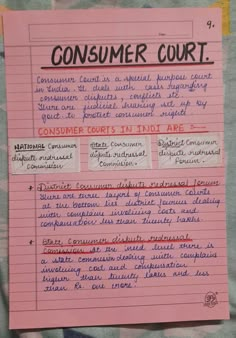 9.
CONSUMER COURT.
Consumer Court is a special purpose court
in India. It deals with cases regarding
consumer disputes, conflicts etc
There are judicial hearing set up by
govt to protect consumer rights
CONSUMER COURTS IN INDI ARE
NATIONAL Consumer
dispute redressal
Commission
State Consumer
dispute redressal
Commission.
District Consumer
dispute redressal
Forum.
* District Consumer dispute redressal forum
There are three layers of Consumer Courts
at the bottom lies district forums dealing
with complains involving costs and
compensation less than twenty lakhs.
* State, Consumer dispute redressal
Commission At the next level there is
a state commission dealing with complains
involving cost and compensation
higher than twenty lakhs and less
than Rs one crore.